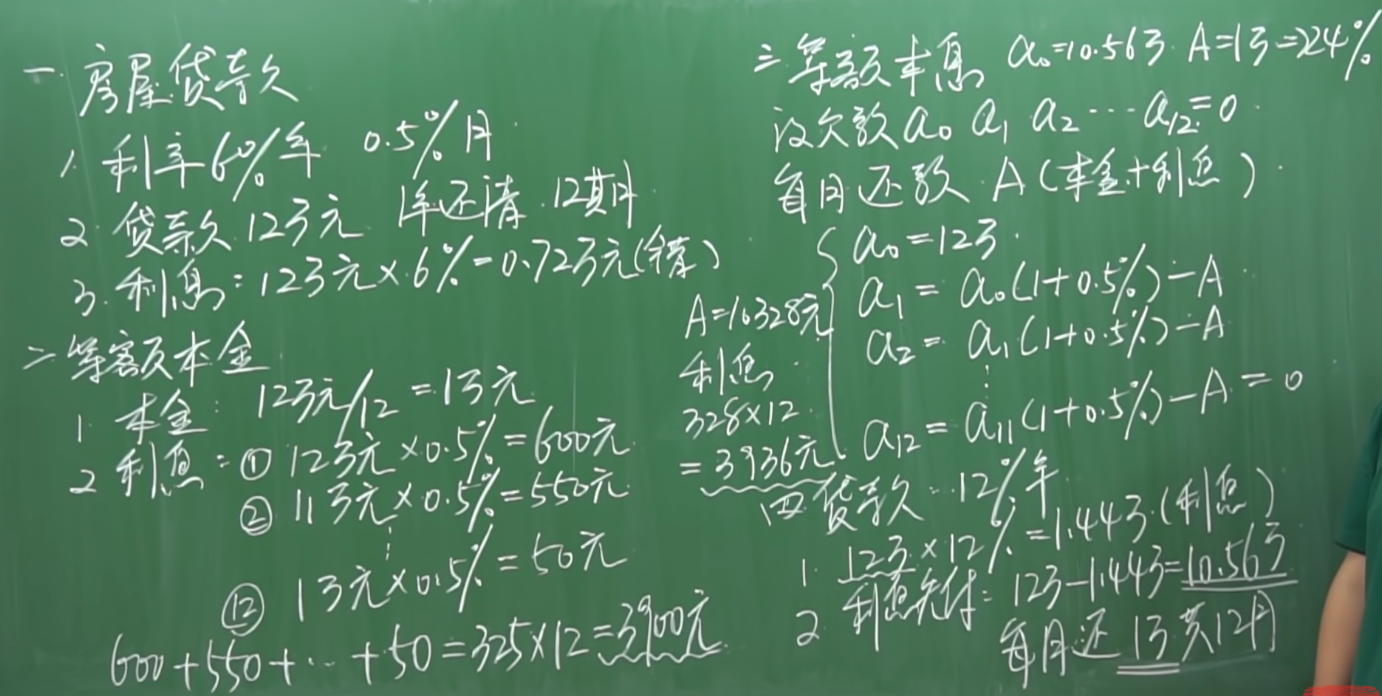 一. 房屋贷款
1. 利率6%/年 0.5%/月
2. 贷款12万元 1年还清 12期/月
3. 利息:12万元×6%=0.72万元(错)
二. 等额本金
1. 本金: 12万元/12=1万元
2 利息:① 12万元×0.5%=600元
② 11万元×0.5%=550元
⋮
⑫ 1万元×0.5%=50元
600+550+…+50=325×12=3900元
三 等额本息 a₀=10.56万 A=1万⇒24%
设欠款 a₀ a₁ a₂ … a₁₂=0
每月还款 A(本金+利息)
a₀=12万
a₁=a₀(1+0.5%)-A
a₂=a₁(1+0.5%)-A
⋮
a₁₂=a₁₁(1+0.5%)-A=0
A=10328元
利息
328×12
=3936元
四 贷款 12%/年
1. 12万×12%=1.44万(利息)
2. 利息先付:12万-1.44万=10.56万
每月还1万共12月